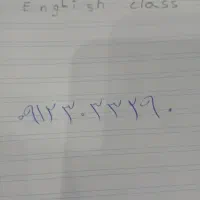 Enghish class
۰۹۱۲۳۰۳۳۲۶۰